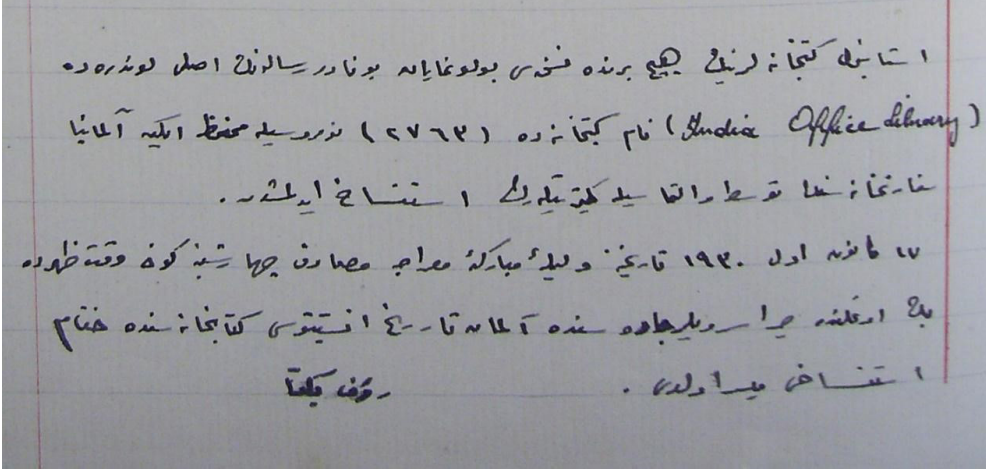 استانبول كتبخانه لرينك هيچ برنده نسخه سى بولونمايان بو نادر رساله نك اصلى لوندره ده
(India Office Library) نام كتبخانه ده (٢٧٦٣) نومروسيله محفوظ ايكن آلمانيا
سفارتخانه سنك توسط والتماسيله كتيريله رك استنساخ ايدلمشدر.
١٧ كانون اول ١٩٣٠ تاريخنه وليلهٔ مباركهٔ معراجه مصادف چهارشنبه كونى وقت ظهرده
بك اوغلنده جاده سنده آلمان تاريخ انستيتوسى كتابخانه سنده ختام
استنساخى ميسر اولدى. رؤف يكتا